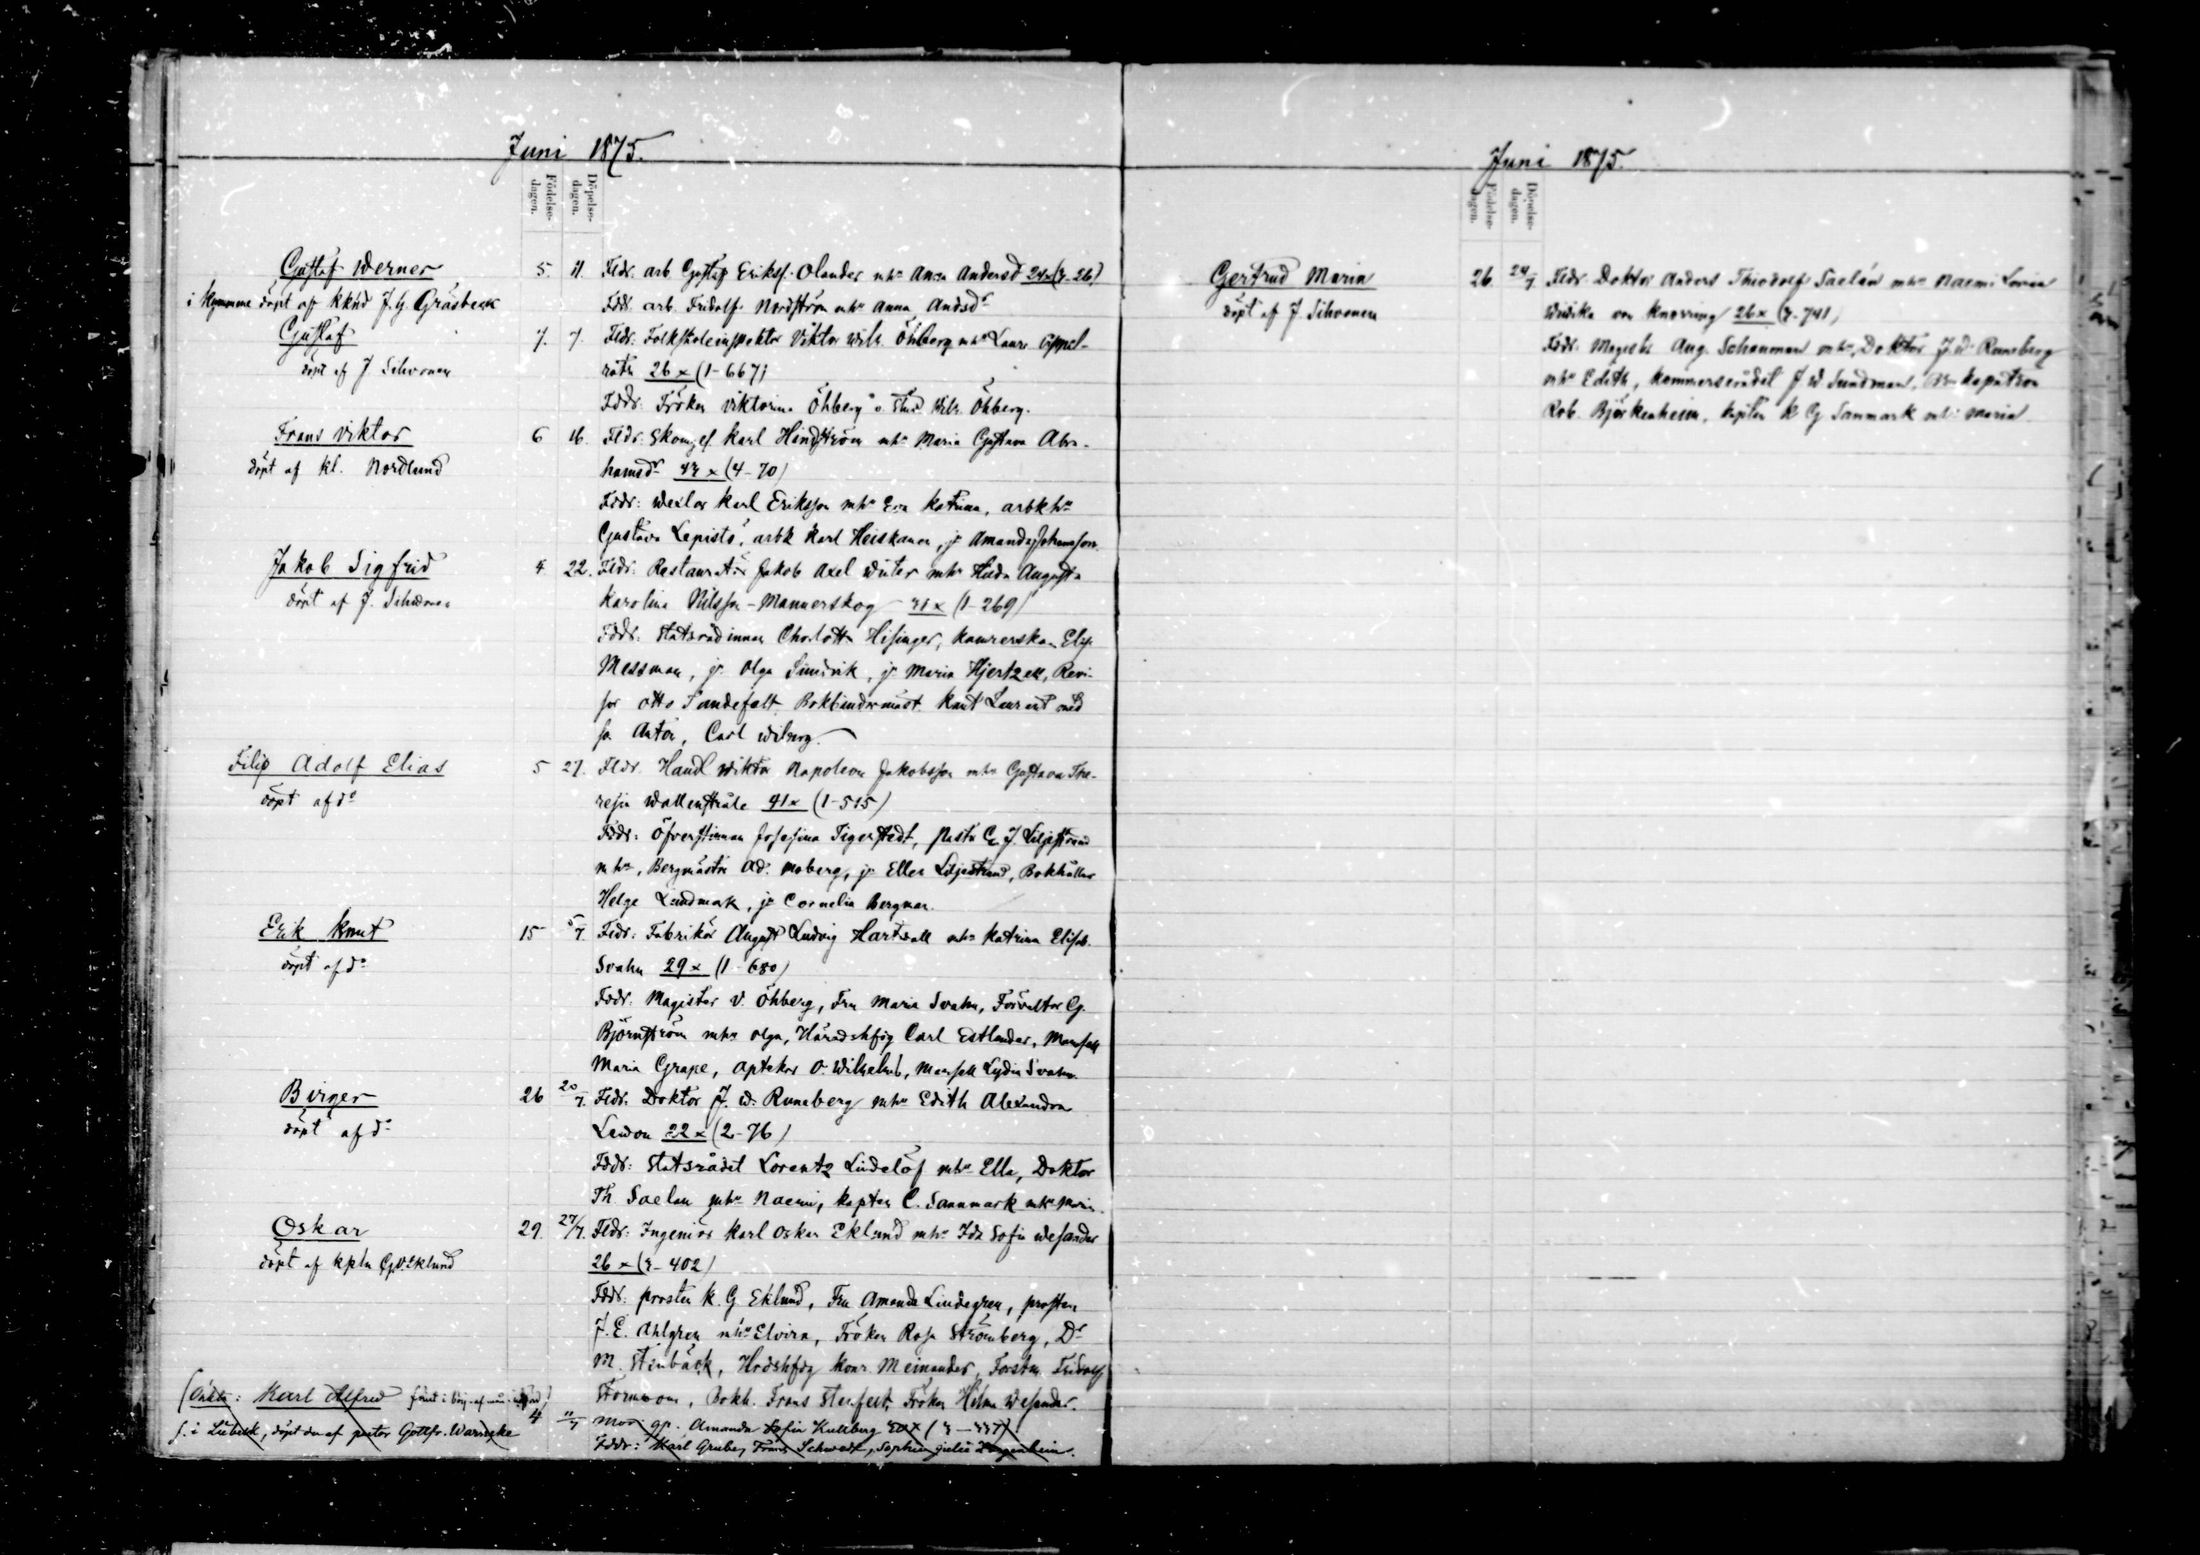 Juni 1875.
Födelse-dagen.
Döpelse-dagen.
Gustaf Werner
i Kymmene döpt af kkåd J. G. Gråsbeck
5. 11. Fldr: arb. Gustaf Erikss. Olander mhu Anna Andersd
Fddr. arb. Fridolf Nordström mhu Anna Andsdr
Gustaf
döpt af J. Sihvonen
7. 7. Fldr: Folkskoleinspektor Viktor Wilh. Öhberg mhu Laura Appel-
roth 26 x (1-667)
Fddr: Fröken Viktorina Öhberg o. Stud. Wilh. Öhberg.
Frans Viktor
döpt af kl. Nordlund
6 16. Fldr: Skomgs Karl Hindström mhu Maria Gustava Abra-
hamsdr (4-70)
Fddr: Karl Eriksson mhu Eva Katrina, arbkhu
Gustava Lepistö, arbk Karl Heiskanen, jr Amanda Johansson.
Jakob Sigfrid
döpt af J. Sihvonen
4. 22. Fldr: Restauratör Jakob Axel Winter mhu Hilda Augusta
Karolina Nilsson-Mannerskog (1-269)
Fddr: Statsrådinnan Charlotta Hisinger, kamrerskan Elis.
Messman, jr Olga Sundvik, jr Maria Hjertzell, Revi-
sor Otto Sandefalt, Bokbindaremäst. Knut Laurent med
Carl Wiberg.
Filip Adolf Elias
döpt af do
5 27. Fldr. Handl Wiktor Napoleon Jakobsson mhu Gustava The-
resia Wallenstråle 41 x (1-515)
Fddr: Öfverstinnan Josefina Tigerstedt, Pastor C. J. Liljestrand
mhu, Bergmästr Ad. Moberg, jr Ellen Liljestrand, Bokhållar
Helge Lindmark, jr Cornelia Bergman.
Erik Knut
döpt af do
15 5/7. Fldr: Fabrikör August Ludvig Hartwall mhu Katrina Elisab.
Svahn 29 x (1-680)
Fddr: Magister V. Öhberg, Fru Maria Svahn, Förvaltor G.
Björnström mhu Olga, Häradshfdg Carl Estlander, Mamsell
Maria Grape, Aptekar O. Wilhelms, Mamsell Lydia Svahn.
Birger
döpt af do
26 20/7. Fldr: Doktor J. W. Runeberg mhu Edith Alexandra
22 x (2-76)
Fddr: Statsrådet Lorentz Lindelöf mhu Ella, Doktor
Th Saelan mhu Naemi, kapten C. Sanmark mhu Maria.
Oskar
döpt af kpln G. V. Eklund
29. 27/7. Fldr: Ingeniör Karl Oskar Eklund mhu Ida Sofia Wesander
26 x (3-402)
Fddr: prosten K. G Eklund, Fru Amanda Lindegren, prosten
J. E. Ahlgren mhu Elvira, Fröken Rosa Strömberg, Dr
M. Stenbäck, Hrdshfdg Konr. Meinander, Forstm. Fridolf
Stormbom, Bokh. Frans Stenfelt, Fröken Hilma Wesander.
Karl Alfred
f. i Lübeck, döpt der af pastor Gottfr. Warncke
4 11/7 Mor: qp. Amanda Sofia Kullberg
Fddr: Karl Gruber, Frans Schwedt, Sophie Julie
Juni 1875.
Födelse-dagen.
Döpelse-dagen.
Gertrud Maria
döpt af J. Sihvonen
26. 24/7 Fldr Doktor Anders Thiodolf Saelan mhu Naemi Lovisa
von Knorring 26 x (3-741)
Fddr. Magister Aug. Schauman mhu, Doktor J. W. Runeberg
mhu Edith, Kommerserådet J W Sundman, kaptenn
Rob. Björkenheim, kapten K G Sanmark mhu Maria.